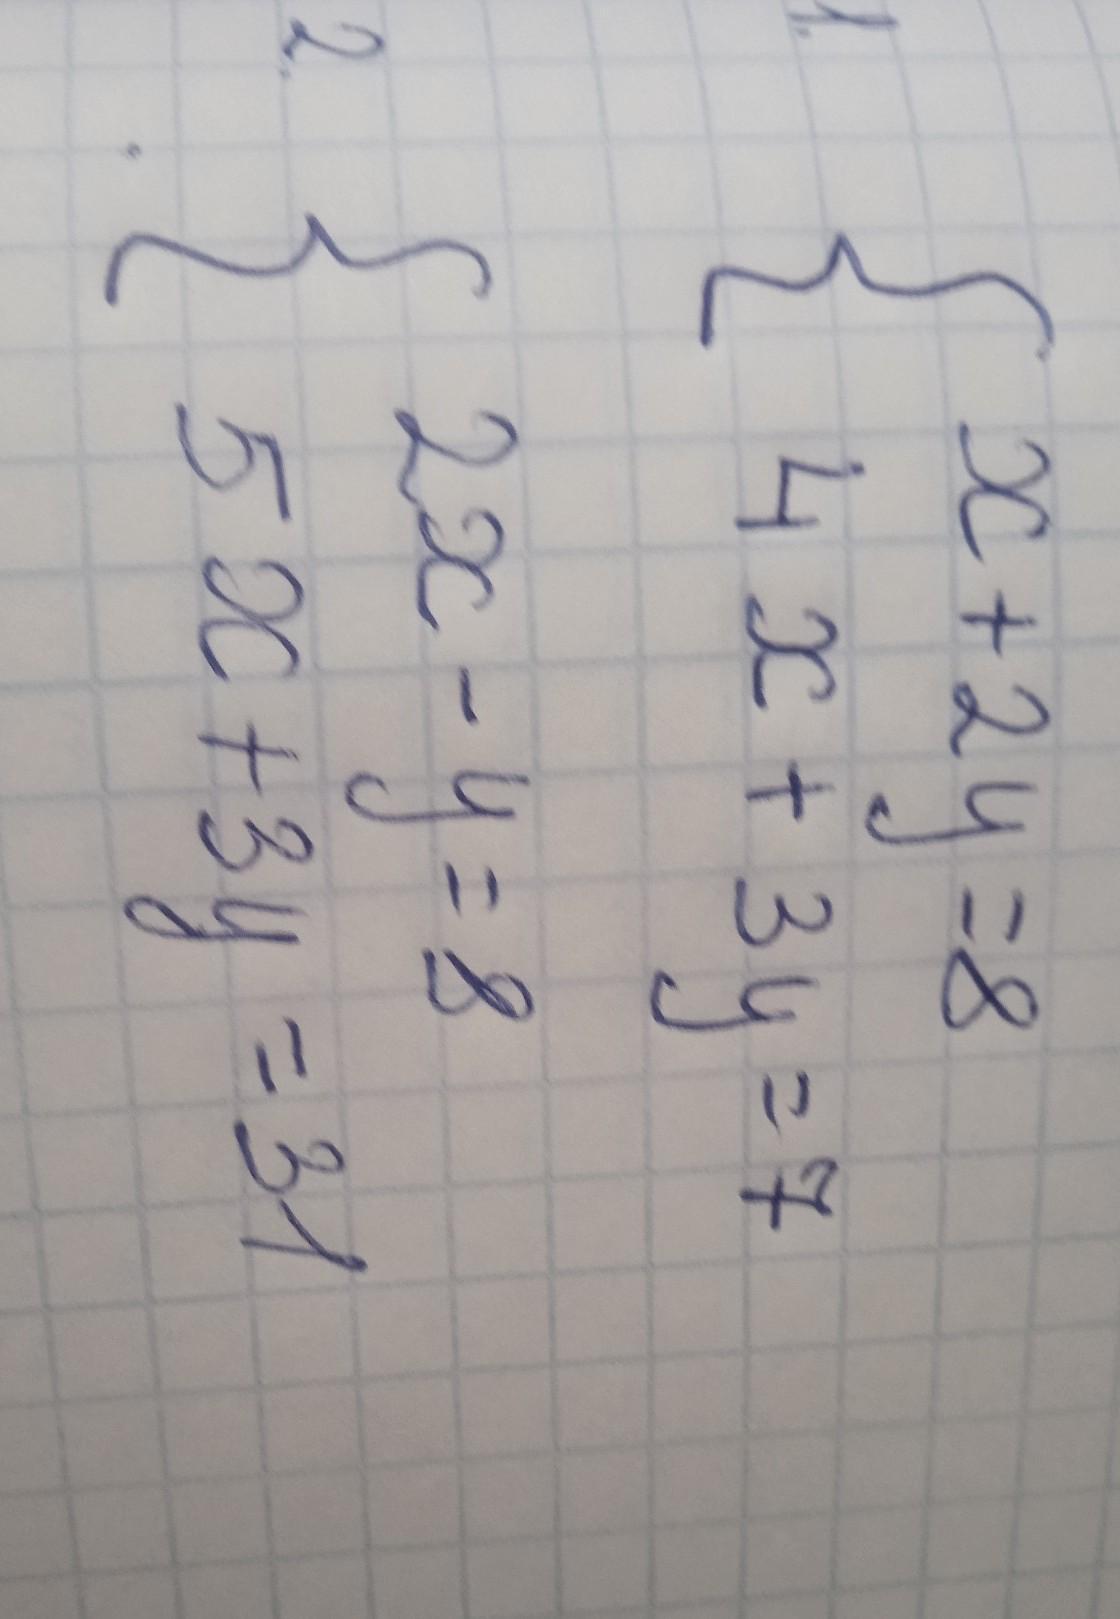 1. { x + 2y = 8
4x + 3y = 7
2. { 2x - y = 8
5x + 3y = 31